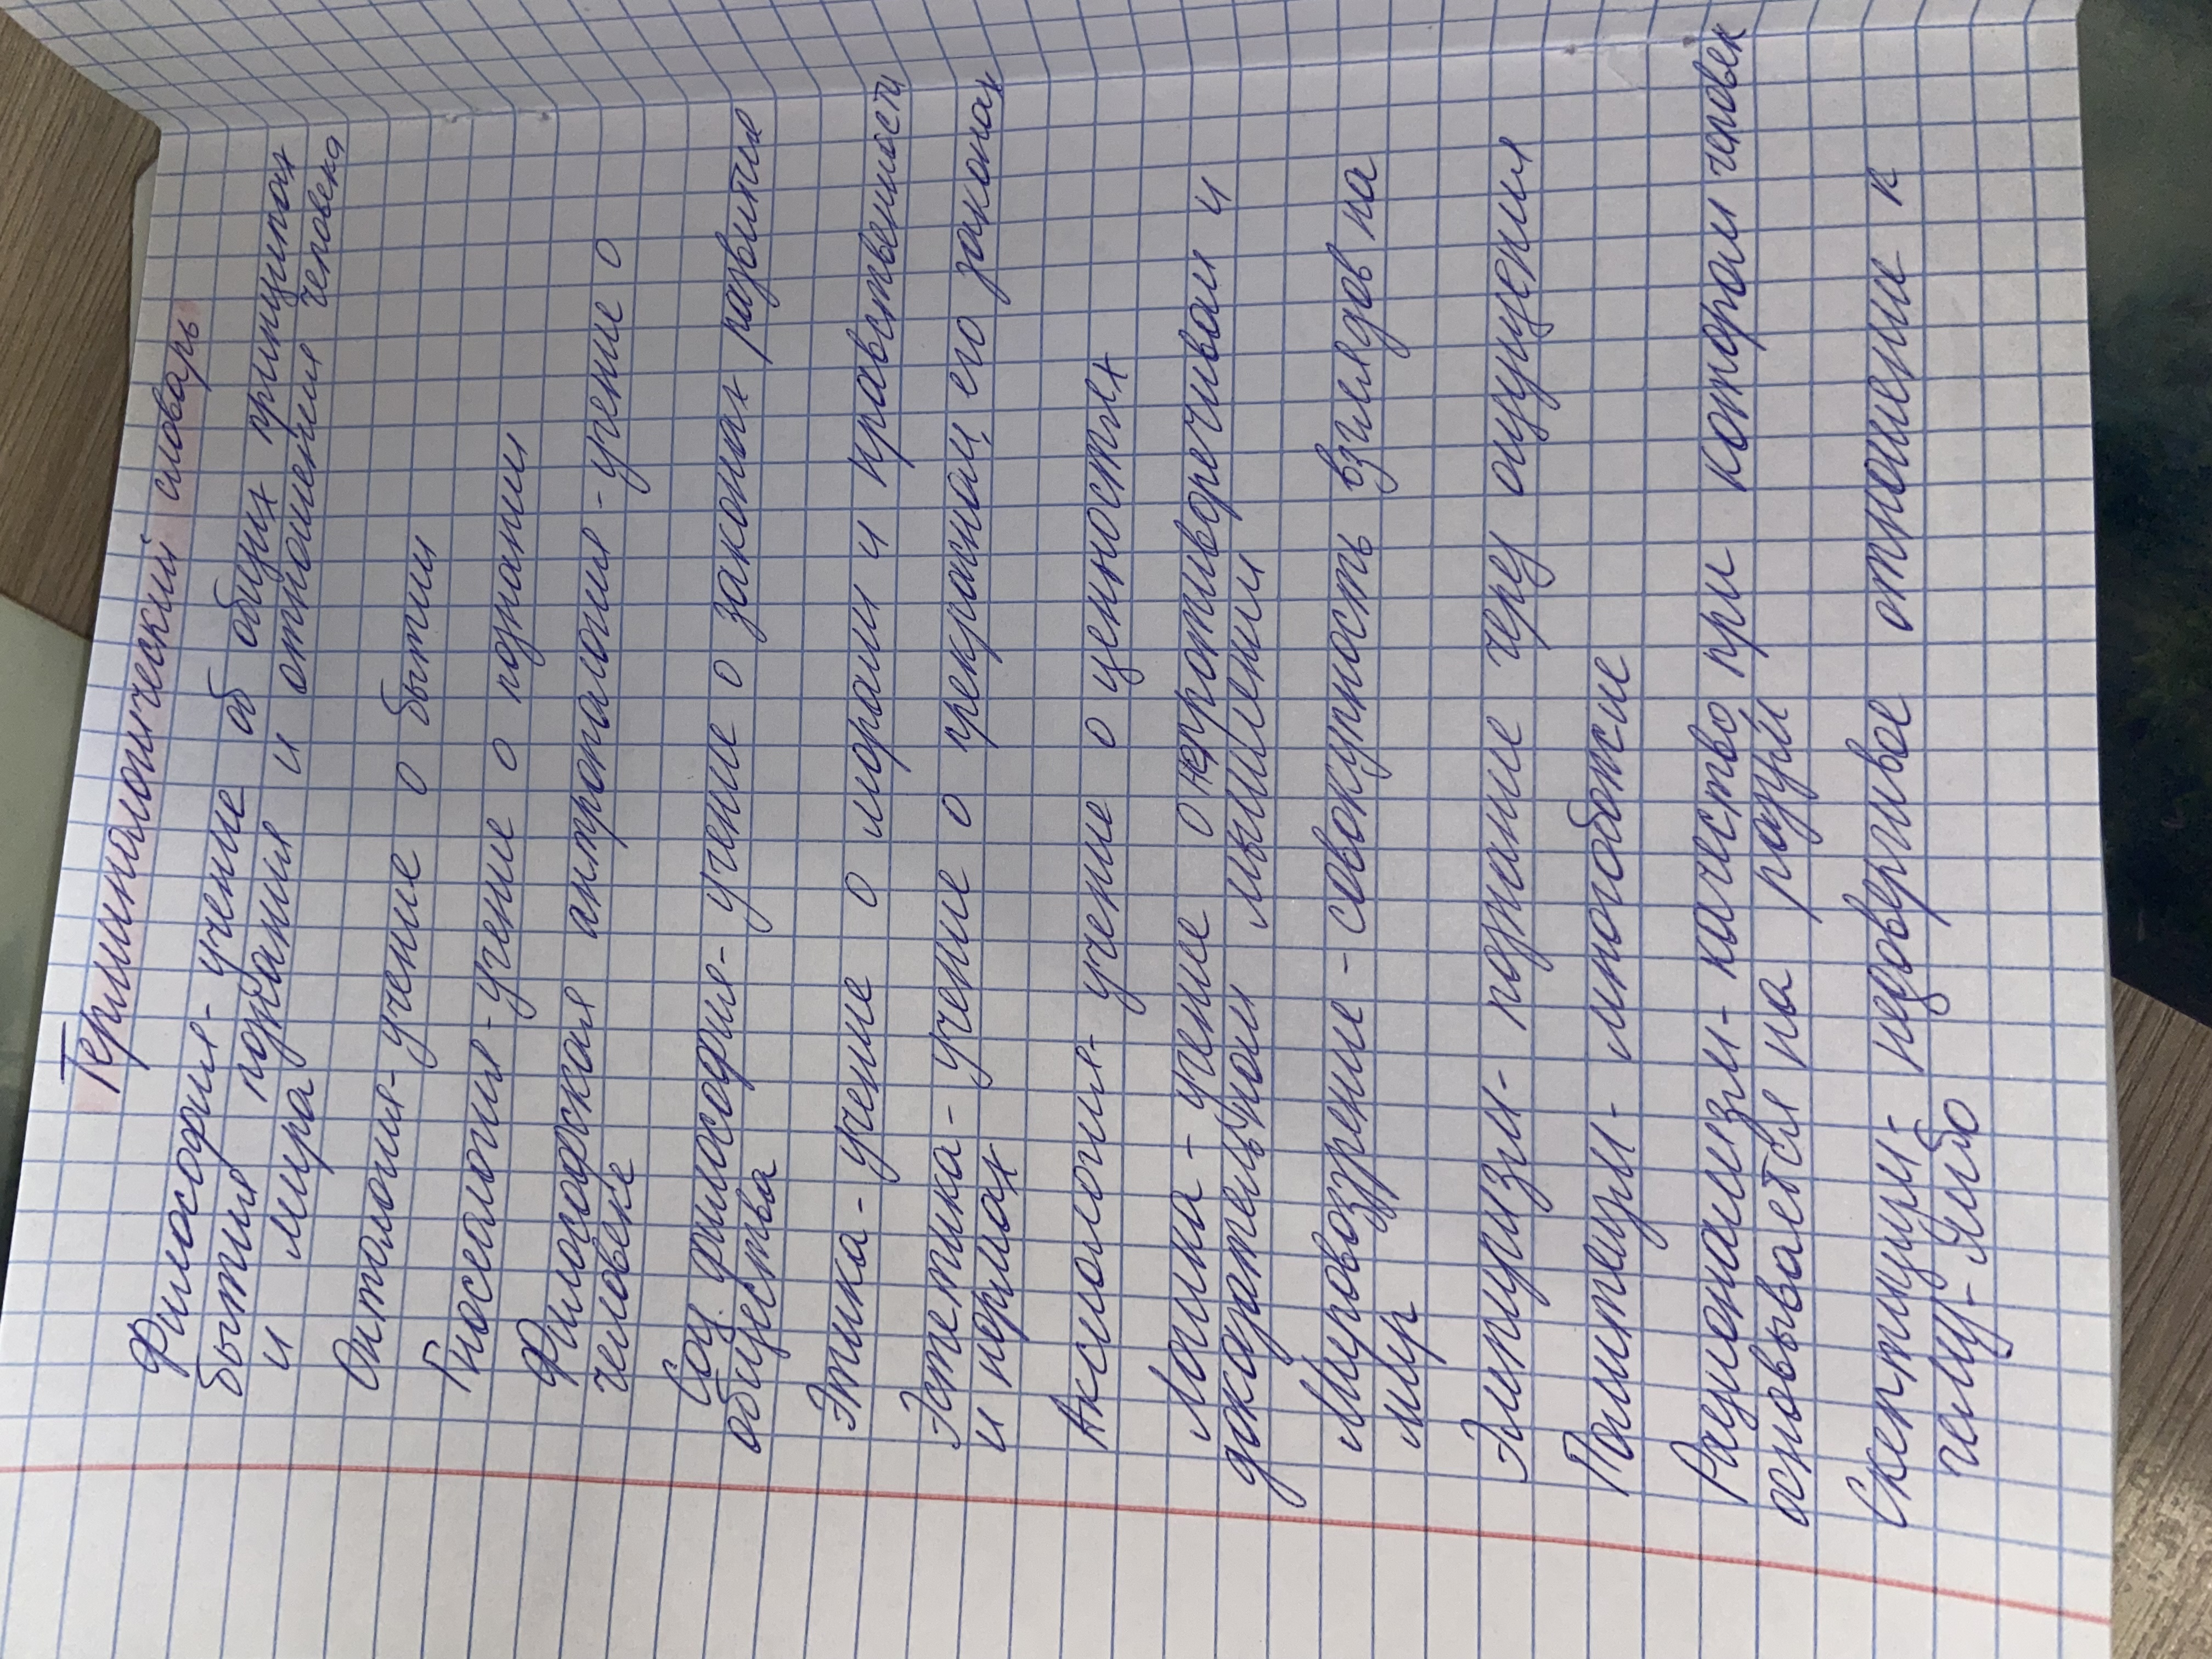 Терминалогический словарь
Философия- учение об общих принципах
бытия познания и отношения человека
и мира
Онталогия- учение о бытии
Гносеалогия- учение о познании
Философская антропалогия- учение о
человеке
Соц. философия- учение о законах развития
общества
Этика- учение о морали и нравственности
Эстетика- учение о прекрасном, его законах
и нормах
Аксиалогия- учение о ценностях
Логика- учение о непротиворечивом и
доказательном мышлении
Мировоззрение- совокупность взглядов на
мир
Эмпиризм- познание через ощущения
Политеизм- многобожие
Рационализм- качество при котором человек
основывается на разум
Скептицизм- недоверчивое отношение к
чему-либо